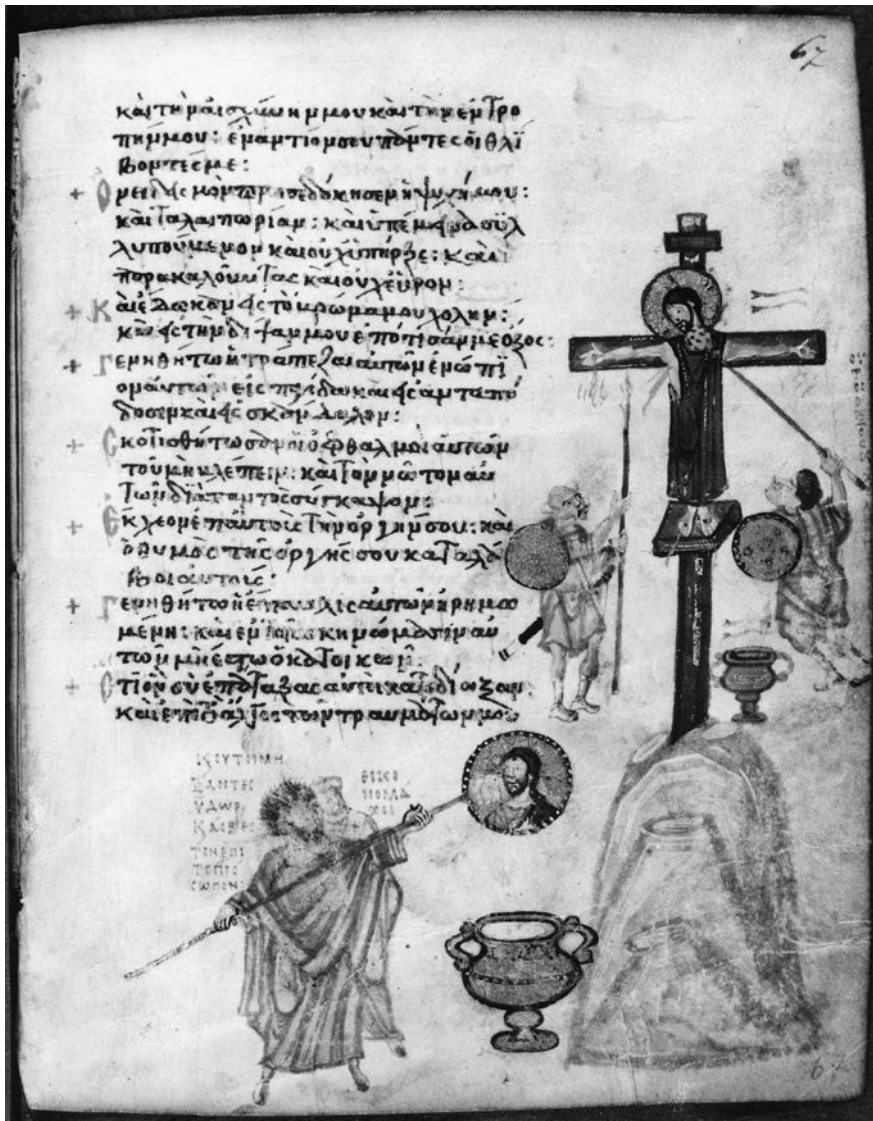 67
καὶ τὴν αἰσχύνην μου καὶ τὴν ἐντρο
πήν μου: ἐναντίον σου πάντες οἱ θλί
βοντές με:
+ Ὀνειδισμὸν προσεδόκησεν ἡ ψυχή μου:
καὶ ταλαιπωρίαν: καὶ ὑπέμεινα συλ
λυπούμενον καὶ οὐχ ὑπῆρξε: καὶ
παρακαλοῦντας καὶ οὐχ εὗρον:
+ Καὶ ἔδωκαν εἰς τὸ βρῶμά μου χολήν:
καὶ εἰς τὴν δίψαν μου ἐπότισάν με ὄξος:
+ Γενηθήτω ἡ τράπεζα αὐτῶν ἐνώπι
ον αὐτῶν εἰς παγίδα καὶ εἰς ἀνταπό
δοσιν καὶ εἰς σκάνδαλον:
+ Σκοτισθήτωσαν οἱ ὀφθαλμοὶ αὐτῶν
τοῦ μὴ βλέπειν: καὶ τὸν νῶτον αὐ
τῶν διὰ παντὸς σύγκαψον:
+ Ἔκχεον ἐπ αὐτοὺς τὴν ὀργήν σου: καὶ
ὁ θυμὸς τῆς ὀργῆς σου καταλά
βοι αὐτούς:
+ Γενηθήτω ἡ ἔπαυλις αὐτῶν ἠρημω
μένη: καὶ ἐν τοῖς σκηνώμασιν αὐ
τῶν μὴ ἔστω ὁ κατοικῶν:
+ Ὅτι ὃν σὺ ἐπάταξας αὐτοὶ κατεδίωξαν:
καὶ ἐπὶ τὸ ἄλγος τῶν τραυμάτων μου
ΥΔΩΡ
ΕΙΚΟ
ΝΟΜΑ
ΧΟΙ
67